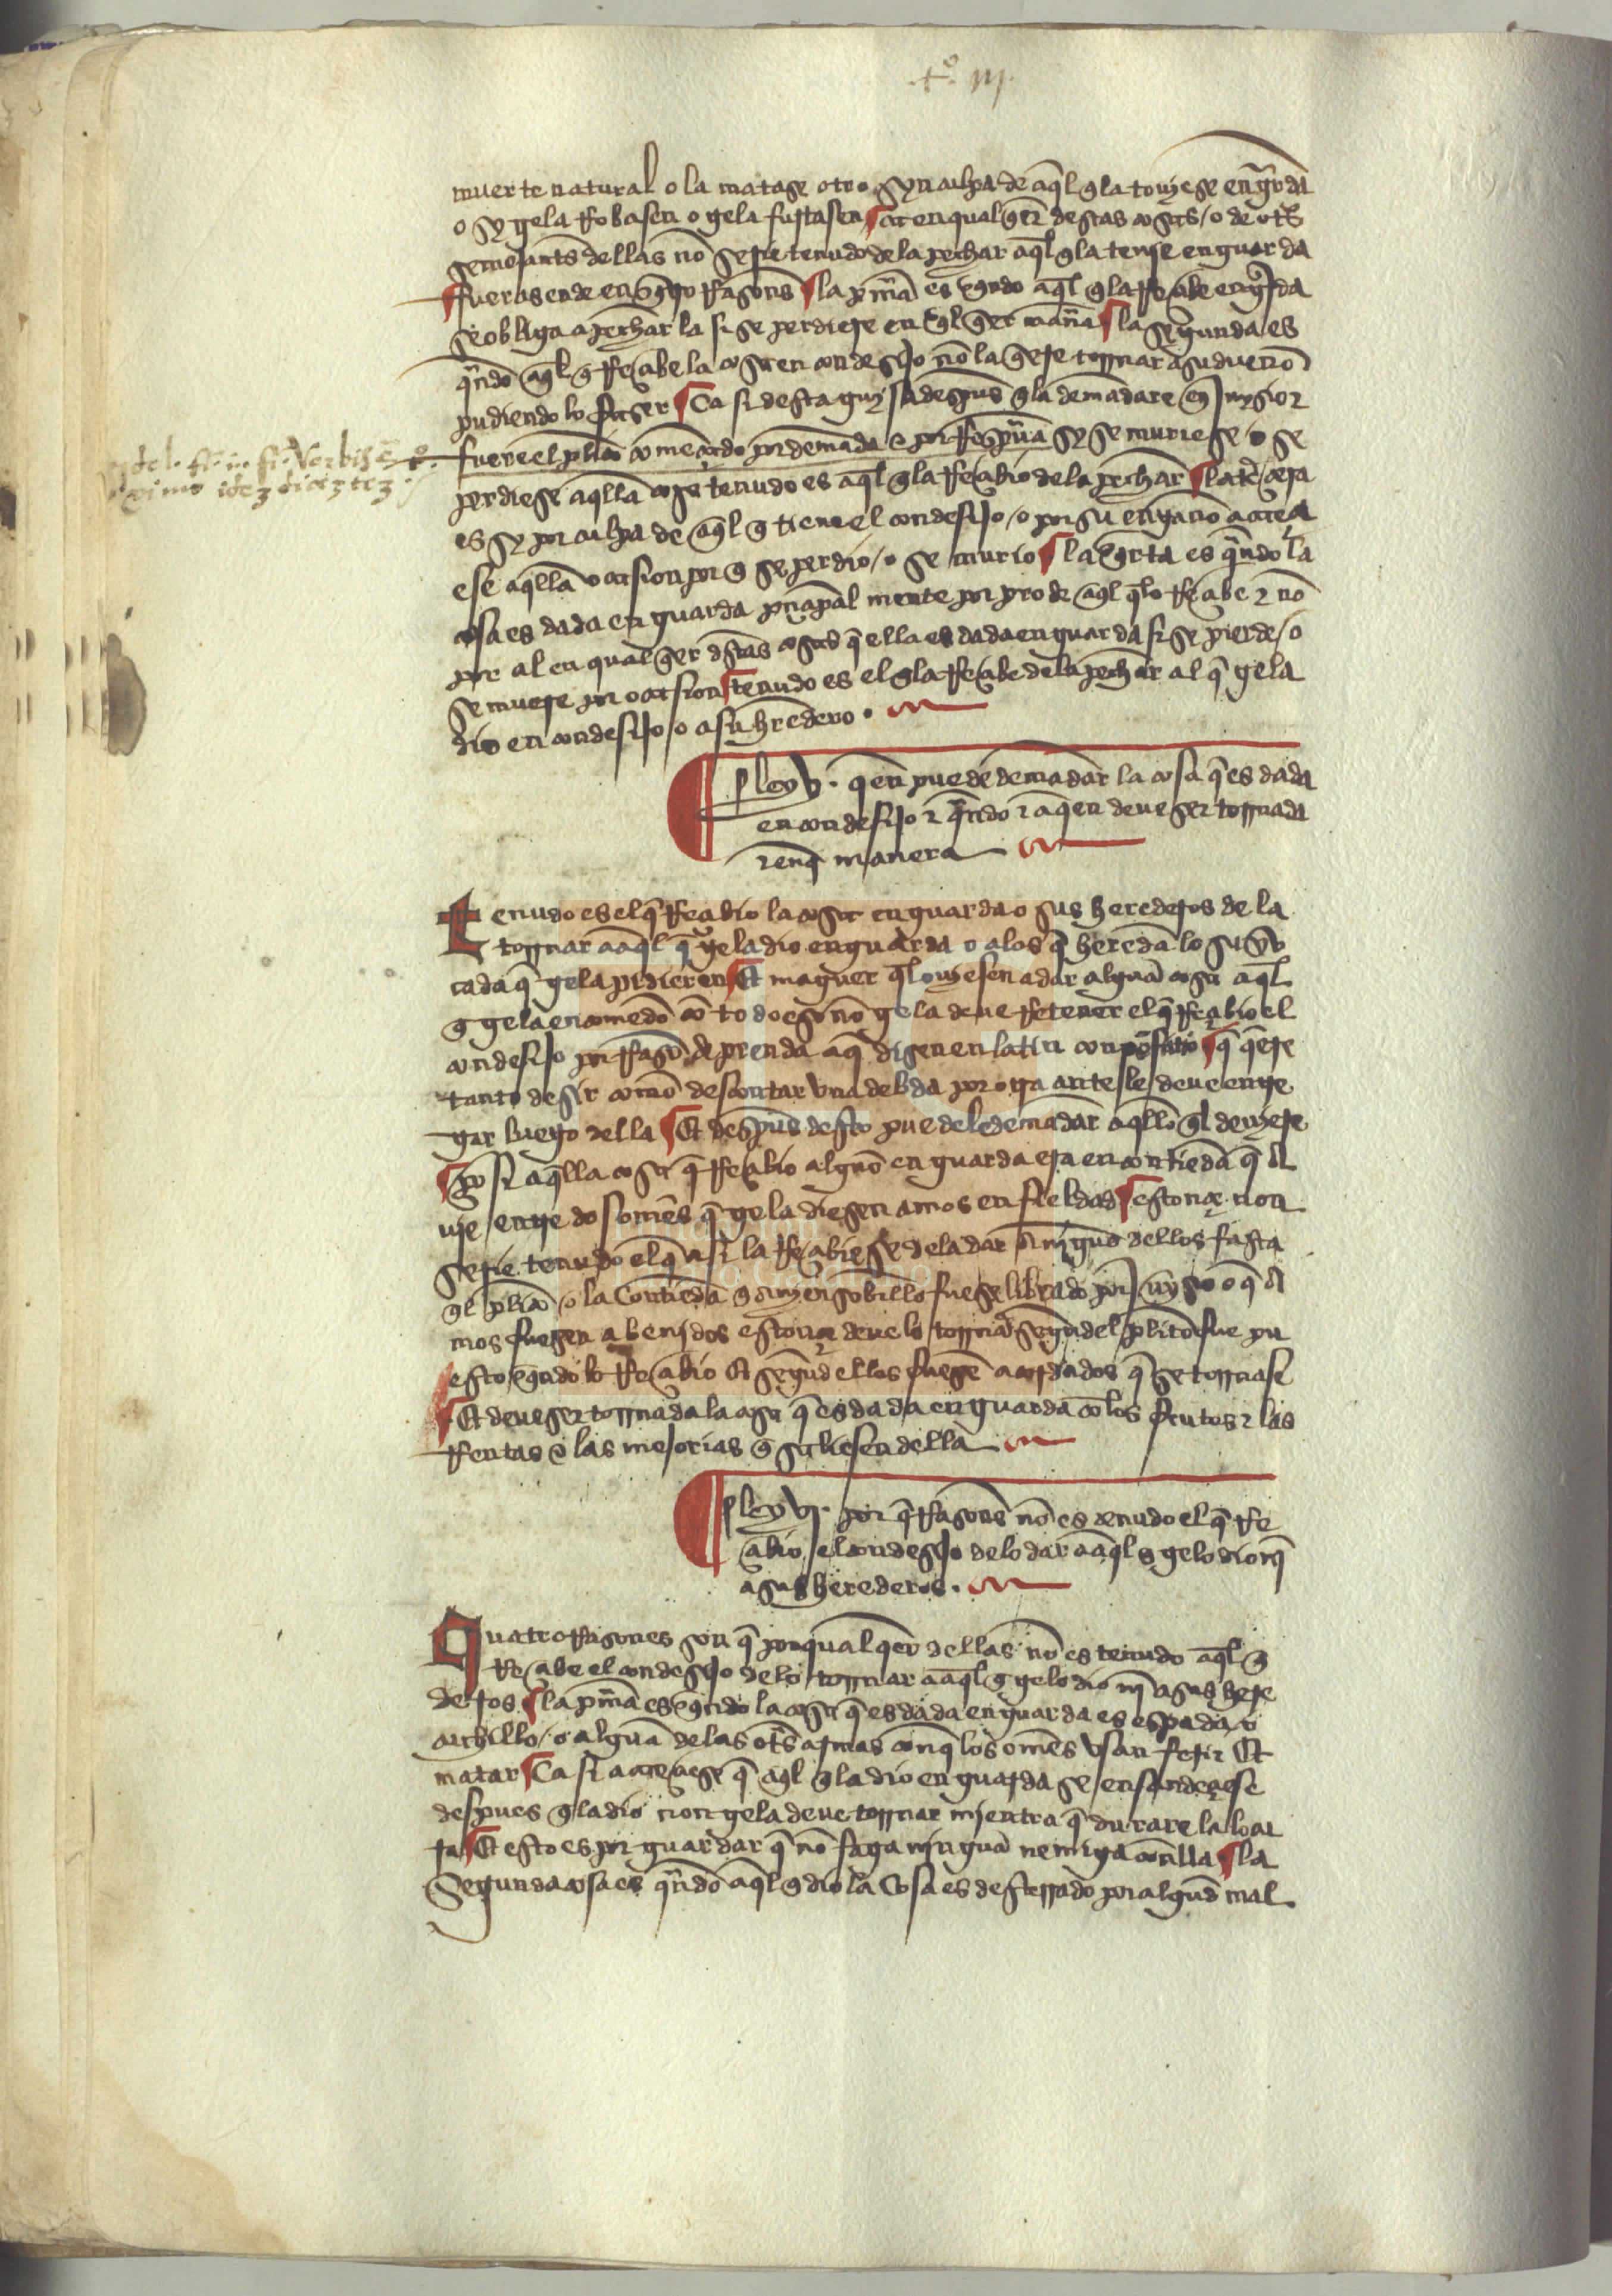 tº iij
muerte natural o la matase otro syn culpa de aq̃l q̃ la touiese en gũrda
o sy gela rrobasen o gela furtasen ca en qual q̃r destas cosas / o de otrs
semejantes dellas nõ serie tenudo de la pechar aq̃l q̃ la tenie en guarda
fueras ende en q̃tro rrasones la pm̃a es q̃ndo aq̃l q̃ la rreçibe en gũrda
se obliga a pecharla si se perdiese en q̃l q̃er mañã la segunda es
q̃ndo aq̃l q̃ rreçibe la cosa en condesijo nõ la q̃ere tornar a su dueño
pudiendo lo faser Ca si desta guysa despues q̃ la demãdare en juysio
fuere el plito comẽçado por demãda e por rrespũta sy se muriese o se
perdiese aq̃lla cosa tenudo es aq̃l q̃ la rreçibio de la pechar la terçera
es sy por culpa de aq̃l q̃ tiene el condesijo / o por su engaño acaeçi
ese aq̃lla ocasion por q̃ se perdio / o se murio la q̃rta es q̃ndo la
cosa es dada en guarda prinçipal mente por pro de aq̃l q̃ lo rreçibe e nõ
por al en qual q̃er destas cosas q̃ ella es dada en guarda si se pierde / o
se muere por ocasion tenudo es el q̃ la rreçibe de la pechar al q̃ gela
dio en condesijo / o a su heredero .
ley v . q̃en puede demãdar la cosa q̃ es dada
en condesijo e q̃ndo e a q̃en deue ser tornada
e en q̃ manera
Tenudo es el q̃ rreçibio la cosa en guarda o sus herederos de la
tornar a aq̃l q̃ gela dio en guarda o a los q̃ heredã lo suyo
cada q̃ gela pidieren Et maguer q̃l ouiesen a dar algũa cosa aq̃l
q̃ gela encomẽdo cõ todo eso nõ gela deue rretener el q̃ rreçibio el
condesijo por rrasõ de prenda a q̃ disen en latin conpensatio q̃ q̃ere
tanto desir como descontar vna debda por otra ante le deue entre
gar luego della Et despues desto puedele demãdar aq̃llo q̃l deuiere
po si aq̃lla cosa q̃ rreçibio algũo en guarda era en contiẽda q̃ a
uie entre dos omẽs q̃ gela diesen amos en fieldad estonçe non
serie tenudo el q̃ asi la rreçibiese de la dar a nĩguno dellos fasta
q̃l plito / o la Contiẽda q̃ auiẽ sobrello fuese librado por juysio o q̃ a
mos fuesen abenidos estonçe deue lo tornar segũd el plito fue pu
esto q̃ndo lo rreçibio Et segũd ellos fuesẽ acordados q̃ se tornase
Et deue ser tornada la cosa q̃ es dada en guarda cõ los frutos e las
rrentas e las mejorias q̃ saliesen della
ley vj . por q̃ rrasones nõ es tenudo el q̃ rre
çibio el condesijo de lo dar a aq̃l q̃ gelo dio nĩ
a sus herederos .
Quatro rrasones son q̃ por qual q̃er dellas nõ es tenudo aq̃l q̃
rreçibe el condesijo de lo tornar a aq̃l q̃ gelo dio nĩ a sus here
deros la pm̃a es q̃ndo la cosa q̃ es dada en guarda es espada o
cuchillo / o algũa de las otrs armas con q̃ los omẽs vsan ferir Et
matar Ca si acaeçiese q̃ aq̃l q̃ la dio en guarda se ensandeçiese
despues q̃ la dio non gela deue tornar mientra q̃ durare la locu
ra Et esto es por guardar q̃ nõ faga ningũa nemiga con ella la
Segunda cosa es q̃ndo aq̃l q̃ dio la Cosa es desterrado por algũd mal